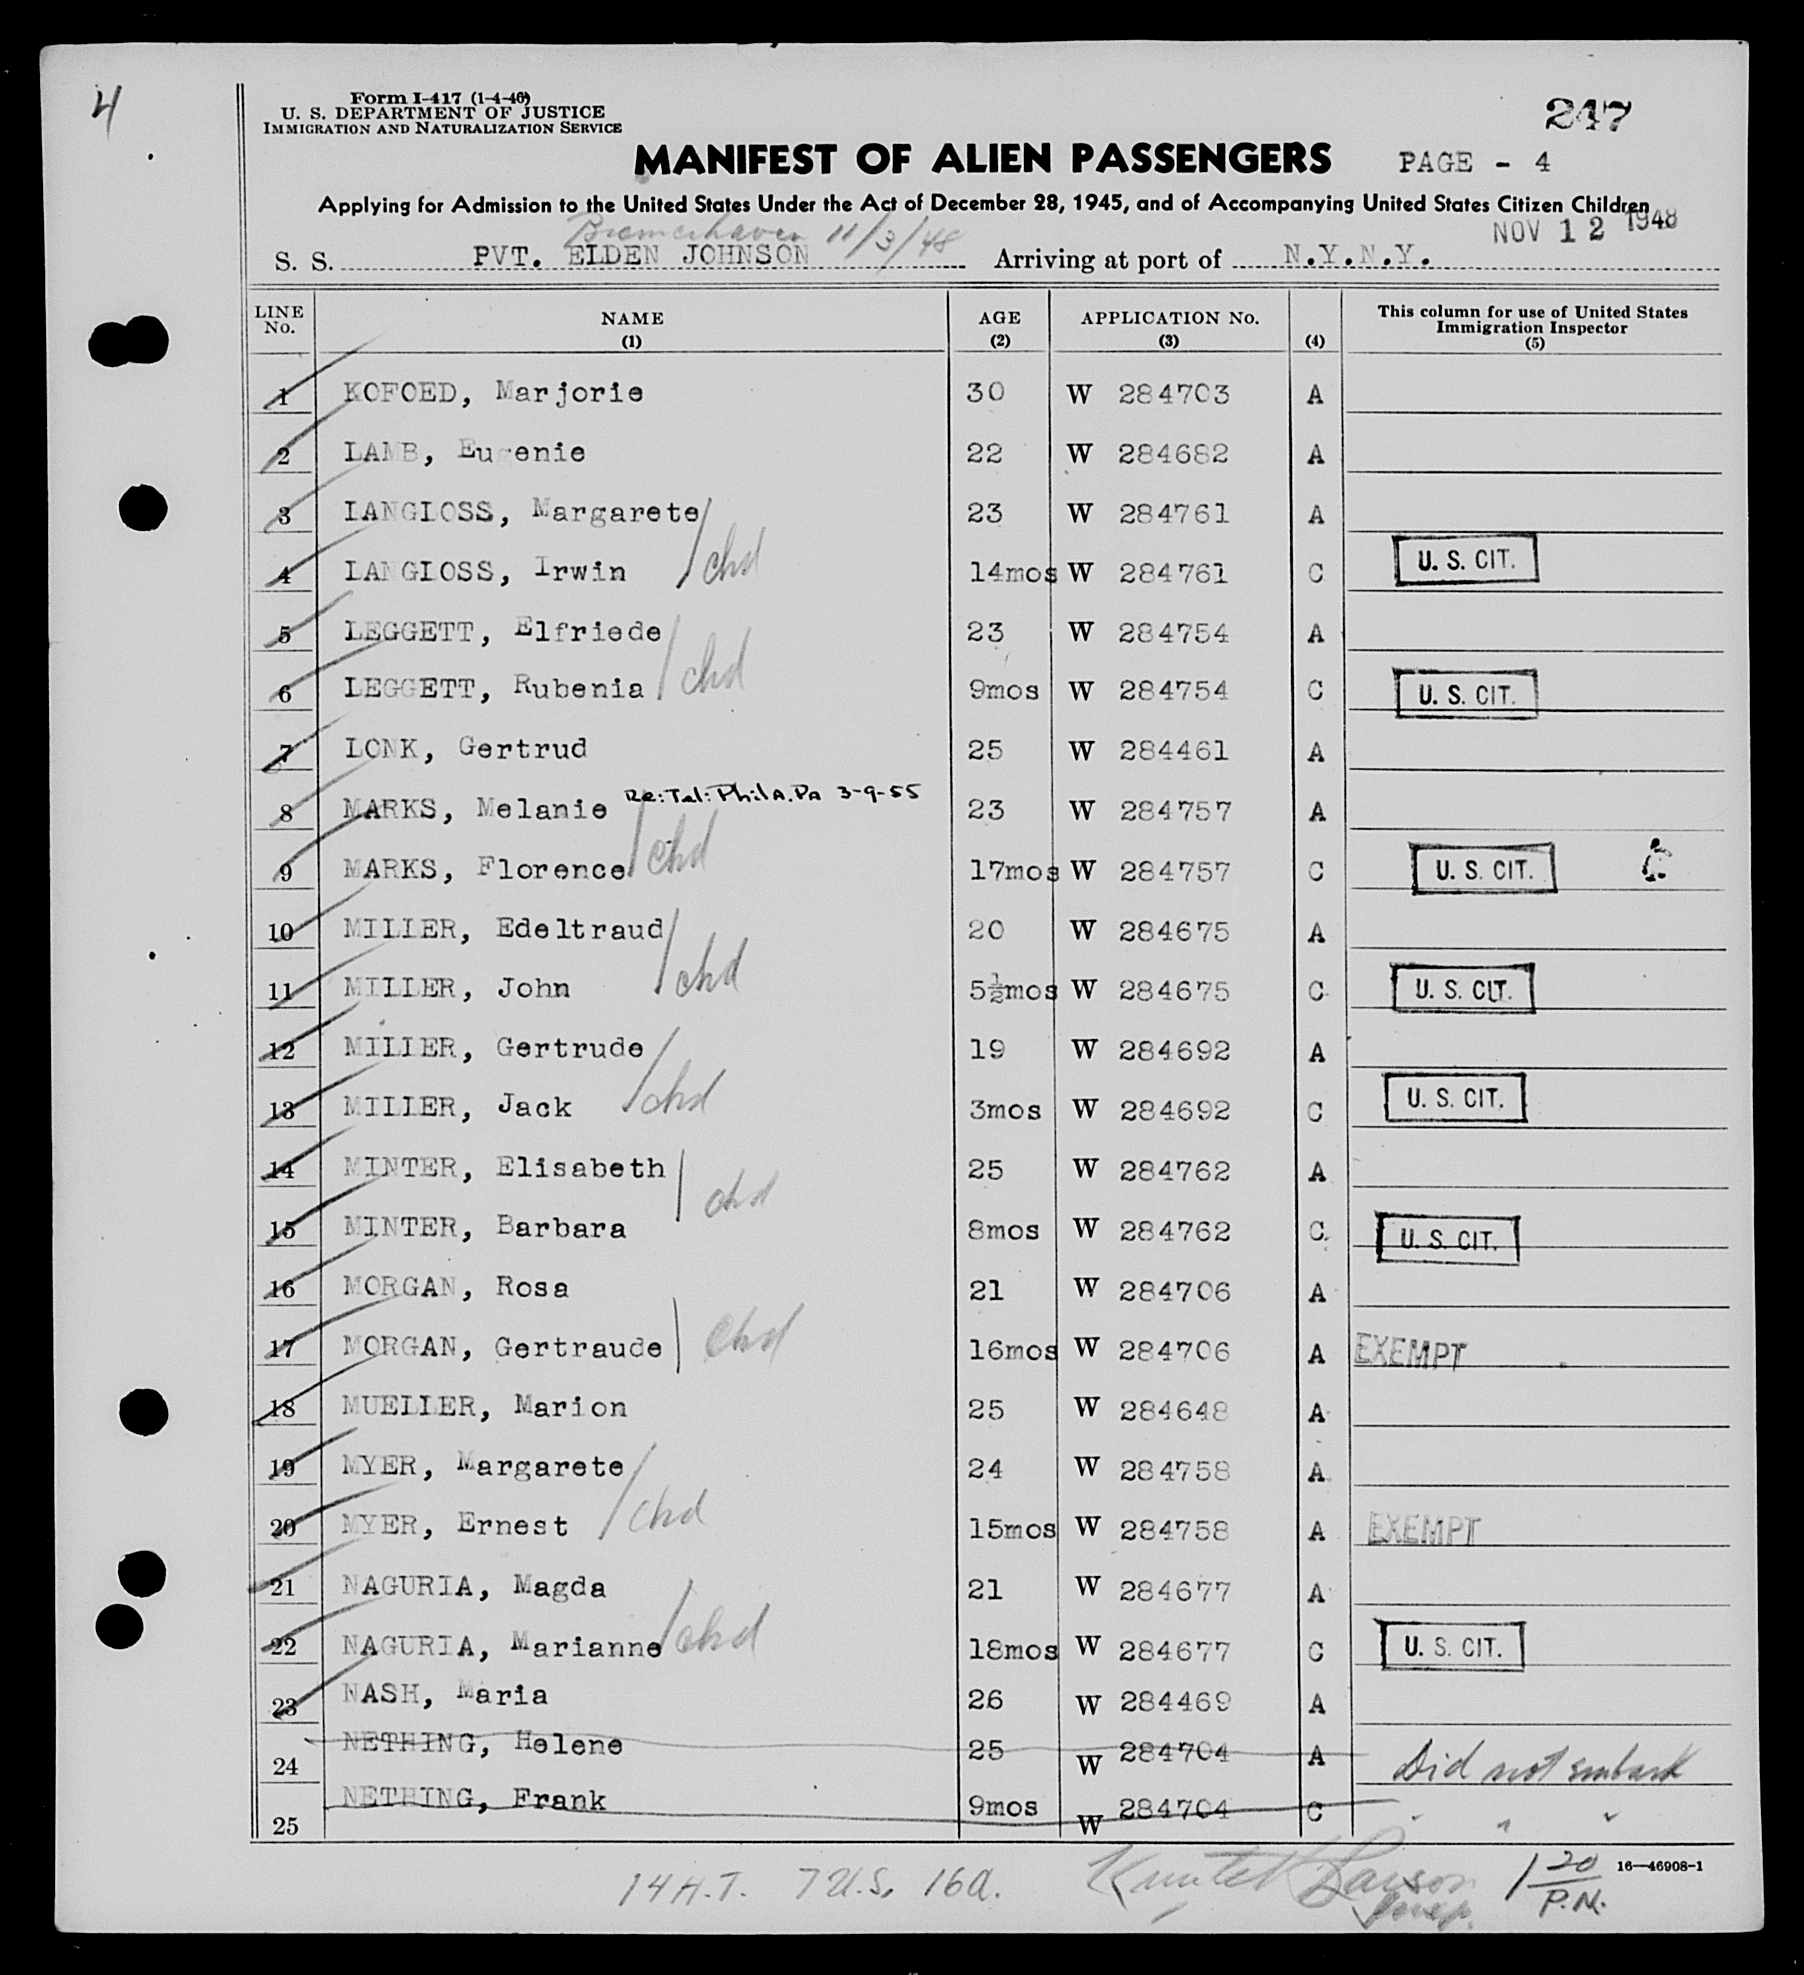 4
Form I-417 (1-4-46)
U. S. DEPARTMENT OF JUSTICE
IMMIGRATION AND NATURALIZATION SERVICE
247
MANIFEST OF ALIEN PASSENGERS PAGE - 4
Applying for Admission to the United States Under the Act of December 28, 1945, and of Accompanying United States Citizen Children
Bremerhaven 11/3/48 NOV 12 1948
S. S. PVT. ELDEN JOHNSON Arriving at port of N.Y.N.Y.
LINE No. NAME (1) AGE (2) APPLICATION No. (3) (4) This column for use of United States Immigration Inspector (5)
1 KOFOED, Marjorie 30 W 284703 A
2 LAMB, Eugenie 22 W 284682 A
3 LANGLOSS, Margarete 23 W 284761 A
4 LANGLOSS, Irwin chd 14mos W 284761 C U. S. CIT.
5 LEGGETT, Elfriede 23 W 284754 A
6 LEGGETT, Rubenia chd 9mos W 284754 C U. S. CIT.
7 LONK, Gertrud 25 W 284461 A
8 MARKS, Melanie Re: Tel: Phila. Pa 3-9-55 23 W 284757 A
9 MARKS, Florence chd 17mos W 284757 C U. S. CIT.
10 MILLER, Edeltraud 20 W 284675 A
11 MILLER, John chd 5½mos W 284675 C U. S. CIT.
12 MILLER, Gertrude 19 W 284692 A
13 MILLER, Jack chd 3mos W 284692 C U. S. CIT.
14 MINTER, Elisabeth 25 W 284762 A
15 MINTER, Barbara chd 8mos W 284762 C U. S. CIT.
16 MORGAN, Rosa 21 W 284706 A
17 MORGAN, Gertraude chd 16mos W 284706 A EXEMPT
18 MUELLER, Marion 25 W 284648 A
19 MYER, Margarete 24 W 284758 A
20 MYER, Ernest chd 15mos W 284758 A EXEMPT
21 NAGURIA, Magda 21 W 284677 A
22 NAGURIA, Marianne chd 18mos W 284677 C U. S. CIT.
23 NASH, Maria 26 W 284469 A
24 NETHING, Helene 25 W 284704 A Did not embark
25 NETHING, Frank 9mos W 284704 C " " "
14 H.T. 7 U.S. 16 A. Larson Insp. 1 20 P.M. 16—46908-1